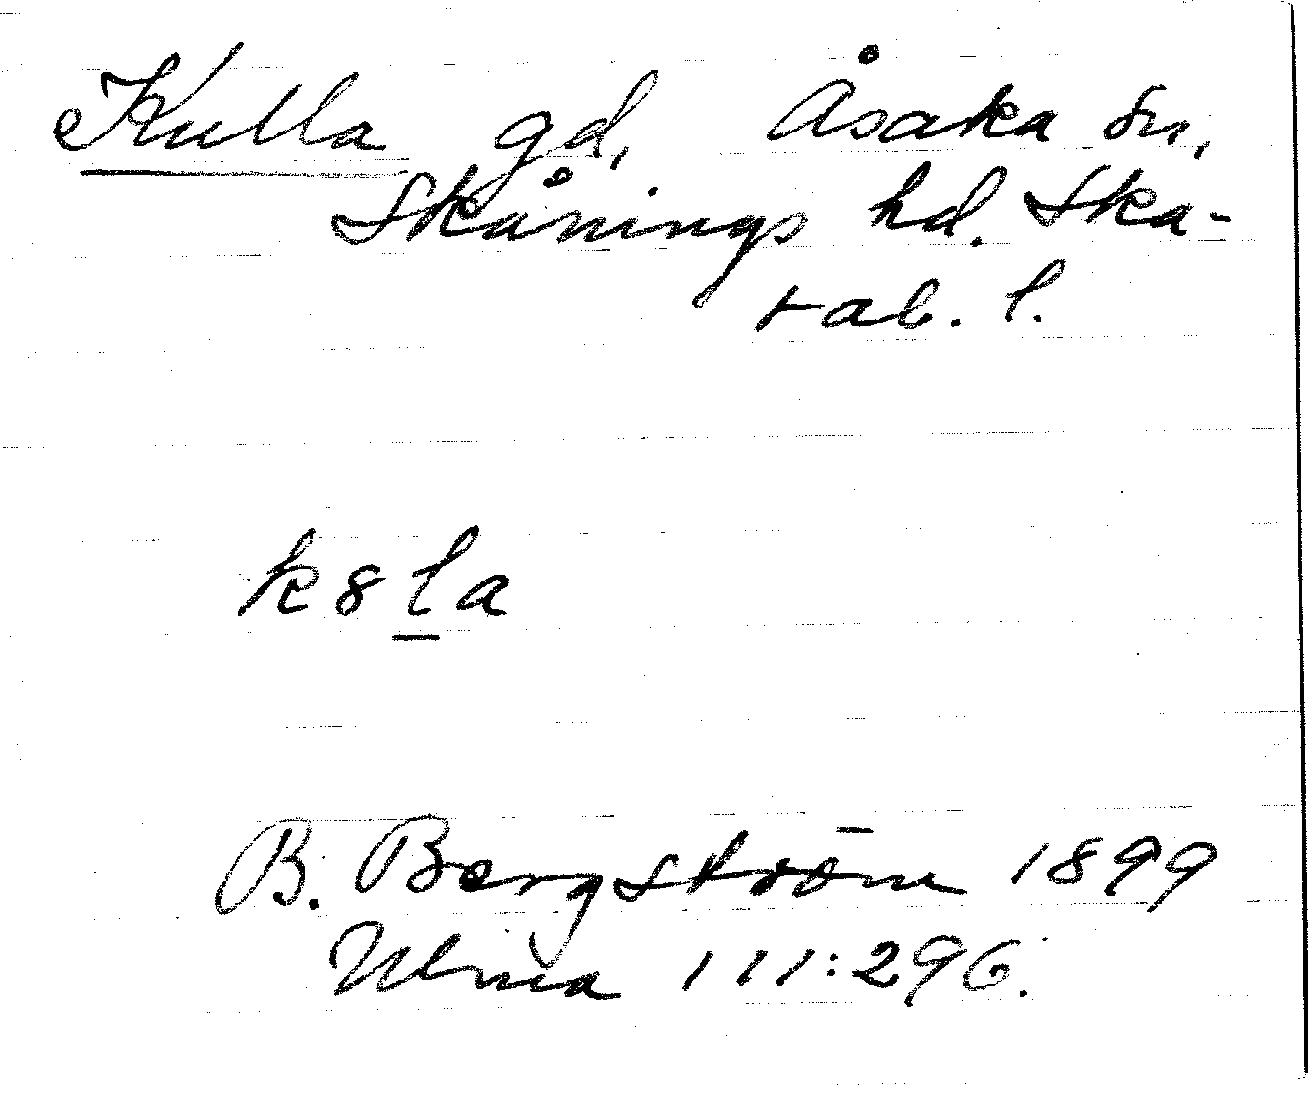 Kulla gd, Åsaka sn,
Skånings hd. Ska-
rab. l.
k8la
B. Bergström 1899
Ulma 111:296.